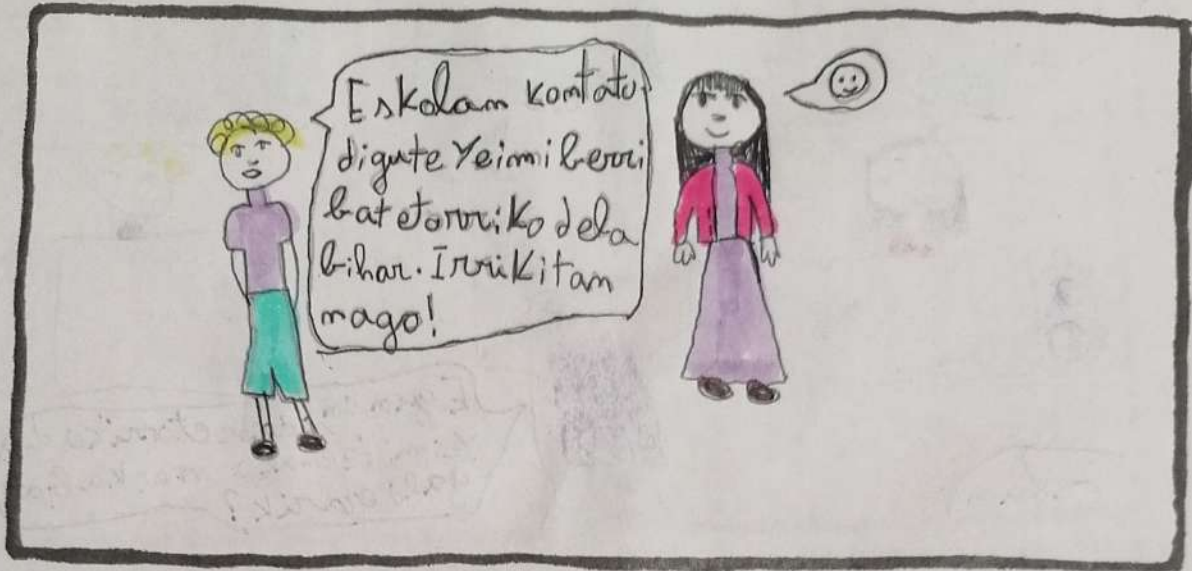 Eskolan kontatu
digute Yeimi berri
bat etorriko dela
bihar. Irrikitan
nago!